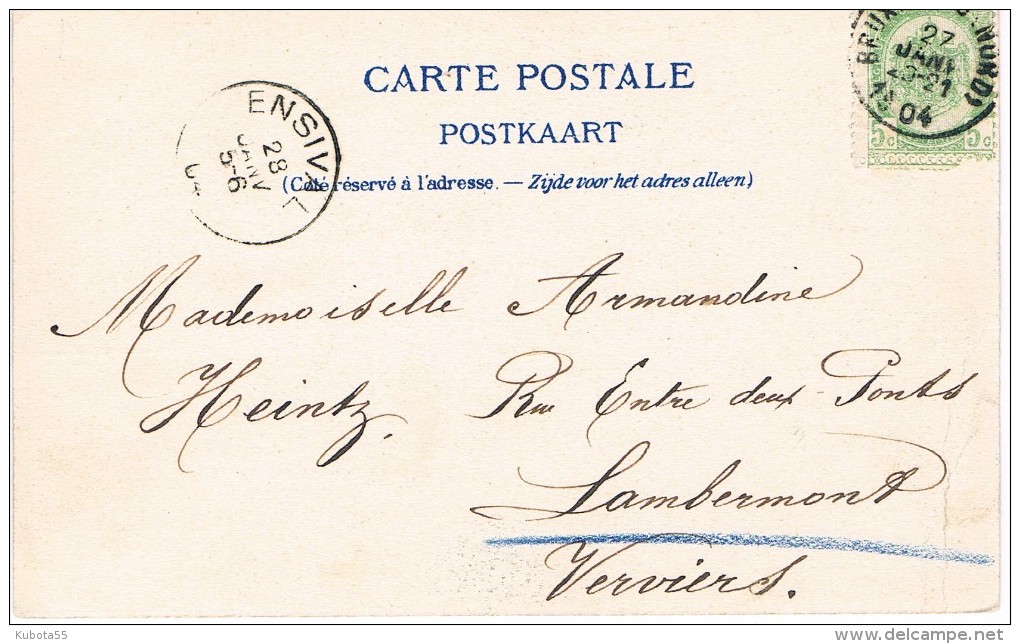 CARTE POSTALE
POSTKAART
(Côté réservé à l'adresse. — Zijde voor het adres alleen)
ENSIVAL
28
JANV
5-6
04
(NORD)
27
JANV
20-21
04
5c 5c
Mademoiselle Armandine
Heintz. Rue Entre deux Ponts
Lambermont
Verviers.
Kubota55
delcampe.net